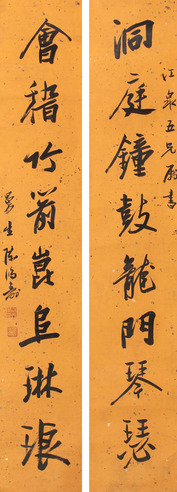 江泉五兄屬書
洞庭鐘鼓龍門琴瑟
會稽竹箭崑阜琳琅
曼生陳鴻壽